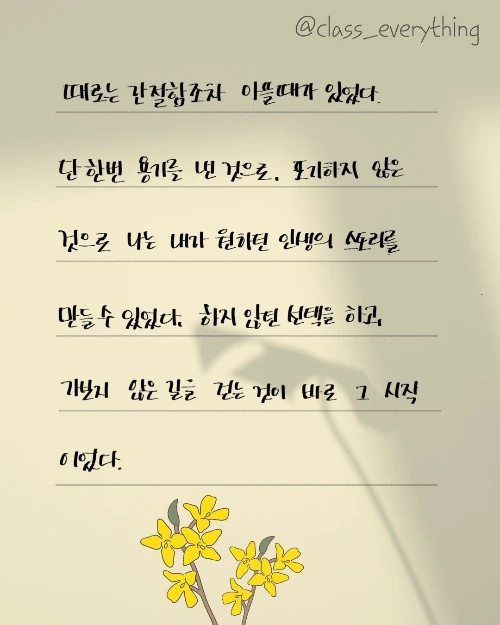 @class_everything
때로는 간절함조차 아플때가 있었다.
단 한번 용기를 낸 것으로, 포기하지 않은
것으로 나는 내가 원하던 인생의 스토리를
만들 수 있었다. 하지 않던 선택을 하고,
가보지 않은 길을 걷는 것이 바로 그 시작
이었다.